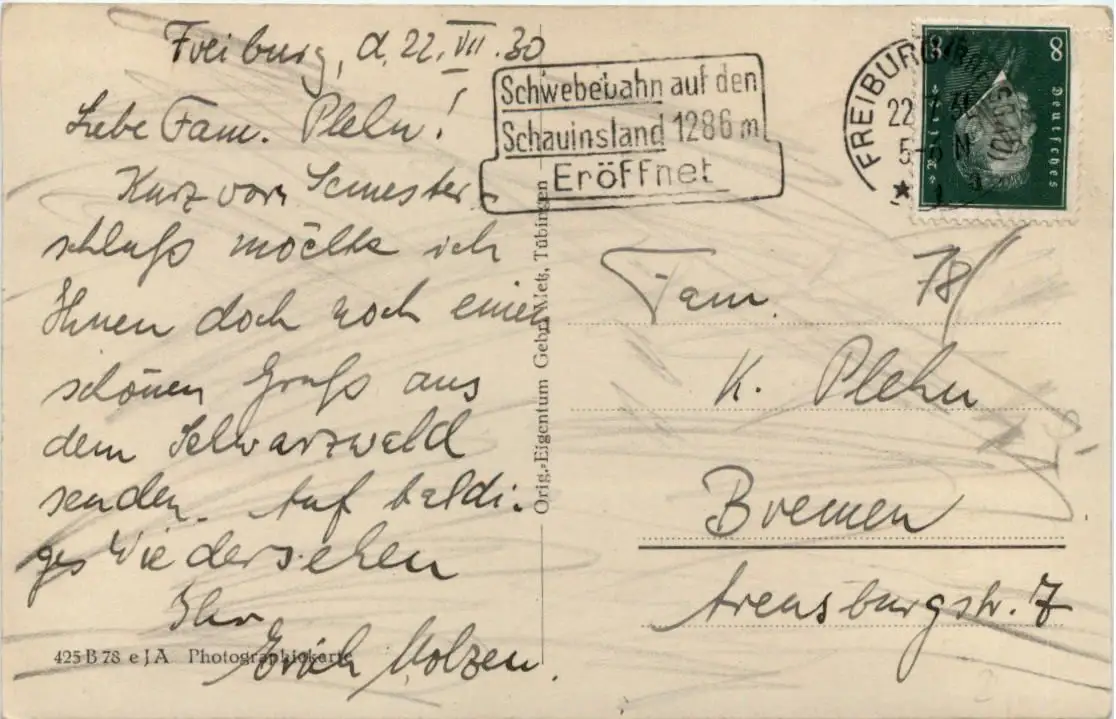 Freiburg, d. 22. VII. 30
Liebe Fam. Plehn!
Kurz vor Semester-
schluß möchte ich
Ihnen doch noch einen
schönen Gruß aus
dem Schwarzwald
senden. Auf baldi-
ges Wiedersehen
Ihr
Erich Molzen.
425 B 78 e J A Photographiekarte
Orig.-Eigentum Gebr. Metz, Tübingen
Schwebebahn auf den
Schauinsland 1286 m
Eröffnet
FREIBURG
22.7.30
5-6 N
★ 1
8 8
Deutsches
78/
Fam.
K. Plehn
Bremen
Arensburgstr. 7